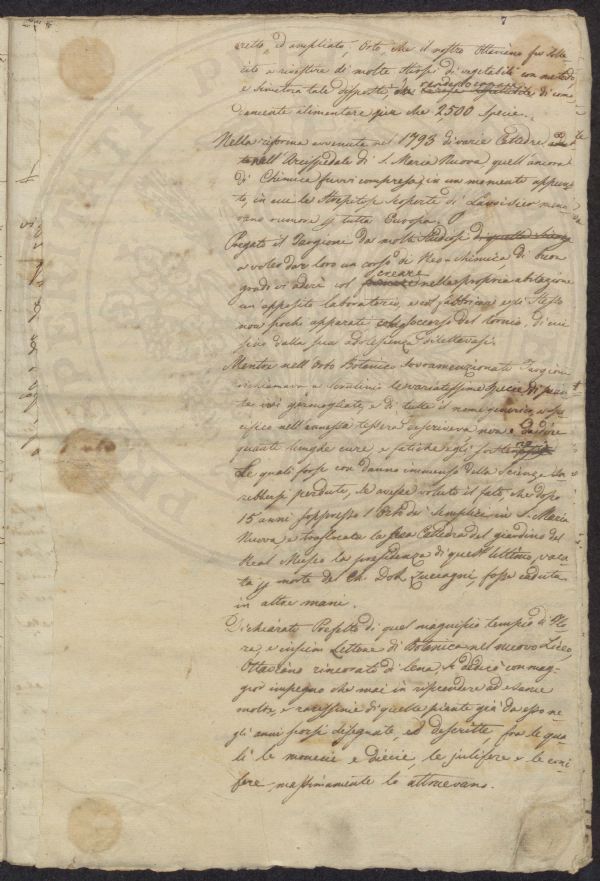 7
retto, ed ampliato Orto, che il nostro Ottaviano fu solle-
cito a rivestire di molte stirpi di vegetabili con metodo,
e simetria tale disposti, da rendere
alimentare più che 2,500 Specie.
Nella riforma avvenuta nel 1793 di varie Cattedre
nell'Arcispedale di S. Maria Nuova, quell'ancora
di Chimica fuvvi compresa, in un momento appun-
to, in cui le strepitose scoperte di Lavoisier mena-
vano rumore p tutta Europa.
Pregato il Targione da molti Studiosi di quella Scienza
a voler dar loro un corso di Neo-chimica, di buon
grado vi aderì col creare nella propria abitazione
un apposito laboratorio, e col fabbricarvi egli stesso
non pochi apparati col soccorso del tornio, di cui
fino dalla sua adolescenza dilettavasi.
Mentre nell'Orto Botanico sovramenzionato Targioni
richiamava a scrutinio le svariatissime specie di pian-
te ivi germogliate, e di tutte il nome generico, e spe-
cifico nell'annessa tessera descriveva non è da dire
quante lunghe cure, e fatiche egli sostenesse
Le quali forse con danno immenso della Scienza sa-
rebbersi perdute, se avesse voluto il fato, che dopo
15 anni soppresso l'Orto dei Semplici in S. Maria
Nuova, e traslocata la sua Cattedra del giardino del
Real Museo la presidenza di quest'ultimo, vaca-
ta p morte del Ch. Dott. Zuccagni, fosse caduta
in altre mani.
Dichiarato Prefetto di quel magnifico tempio di Flo-
ra, e insieme Lettore di Botanica nel nuovo Liceo,
Ottaviano rincorato di lena, si dedicò con mag-
gior impegno che mai in riprendere ad esame
molte, e rarissime di quelle piante già da esso ne-
gli anni scorsi disegnate, ed descritte fra le qua-
li le monecie e diecie, le julifere e le coni-
fere, massimamente lo attraevano.